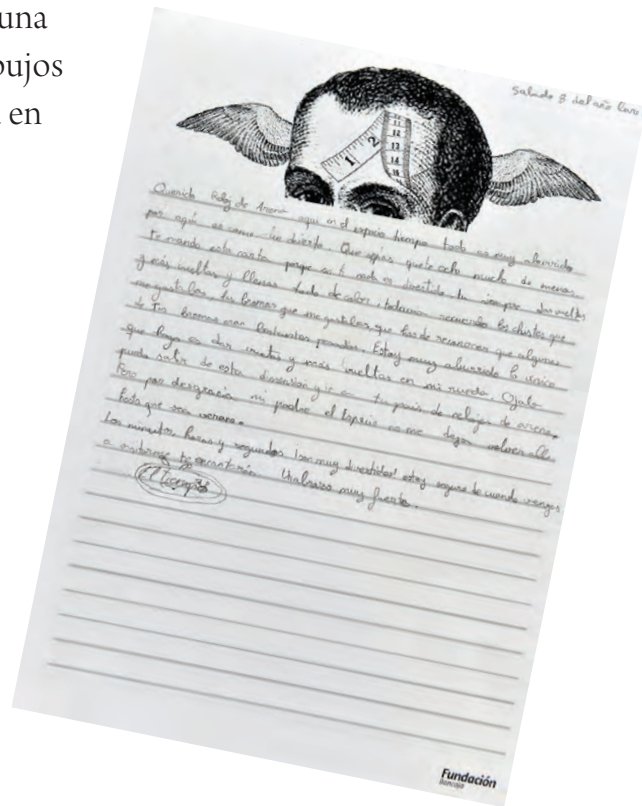 una
bujos
en
Sabado 8 del año
1 2
11
12
13
14
15
Querido Reloj de Arena aqui en el espacio tiempo todo es muy aburrido
por aqui es como un desierto. Que sepas que te echo mucho de menos
te mando esta carta porque a ti todo es divertido tu siempre das vueltas
y más vueltas y llenas todo de color todavia recuerdo los chistes que
me gastabas, las bromas que me gastabas, que has de reconocer que algunas
de tus bromas eran bastantes pesadas. Estoy muy aburrido lo único
que hago es dar vueltas y más vueltas en mi mundo. Ojala
pueda salir de esta dimensión y ir a tu pais de relojes de arena.
Pero por desgracia mi padre el Espacio no me dejan volver alli
hasta que sea verano.
Los minutos, horas y segundos son muy divertidos! estoy seguro de cuando vengas
a visitarme te encantarán. Un abrazo muy fuerte.
El Tiempo
Fundación
Bancaja